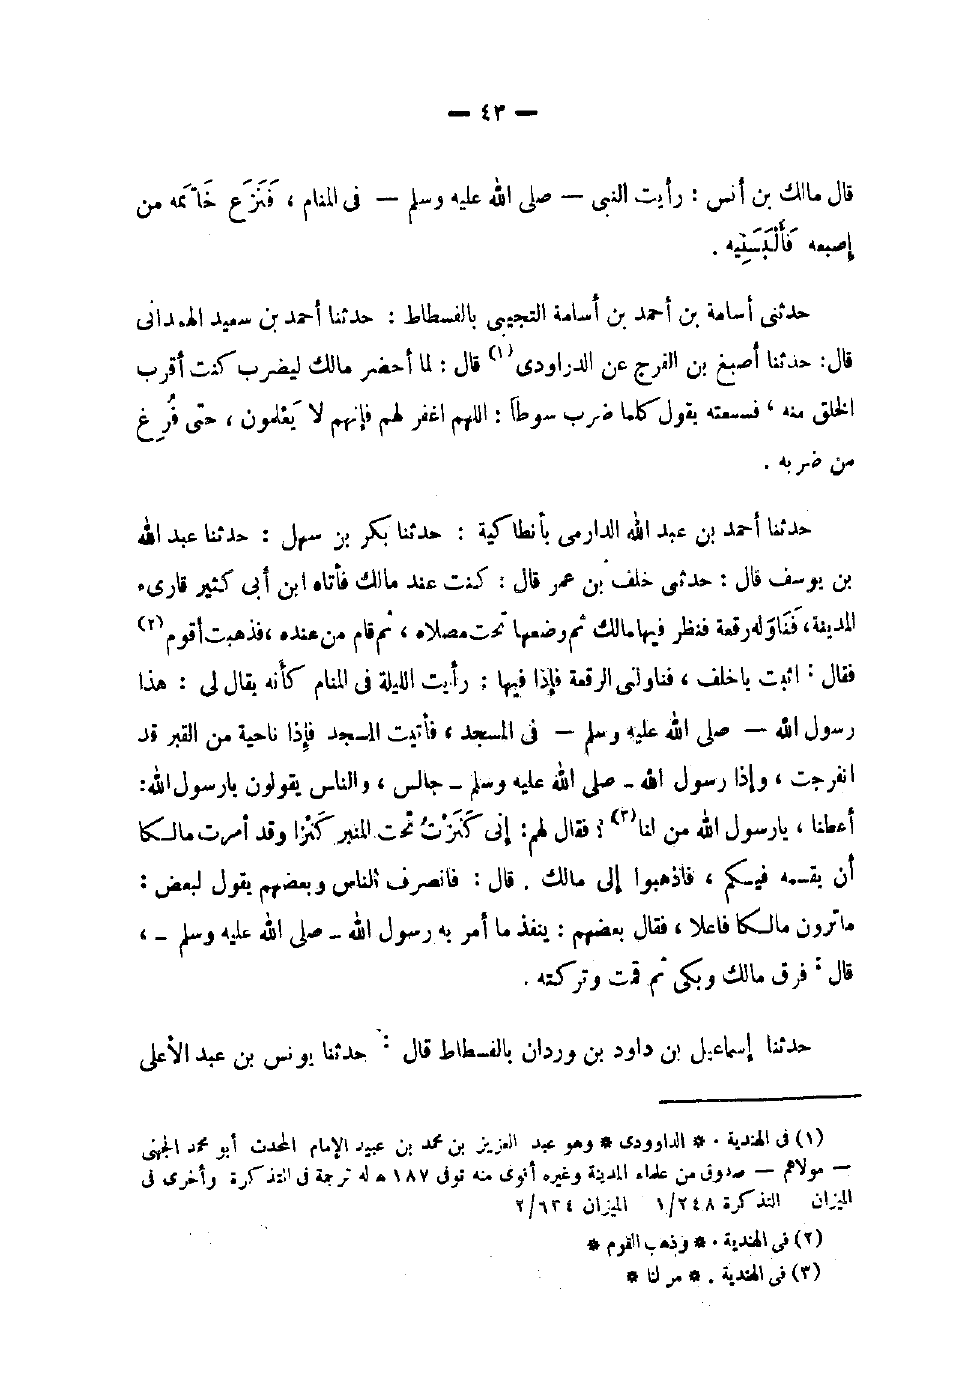 — ٤٣ —
قال مالك بن أنس : رأيت النبي — صلى الله عليه وسلم — فى المنام ، فَنَزَع خَاتمه من
إصبعه فَألْبَسَنِيه .
حدثنى أسامة بن أحمد بن أسامة التجيبى بالفسطاط : حدثنا أحمد بن سعيد الهمدانى
قال: حدثنا أصبغ بن الفرج عن الدراودى(١) قال : لما أحضر مالك ليضرب كنت أقرب
الخلق منه ، فسمعته يقول كلما ضرب سوطا : اللهم اغفر لهم فإنهم لا يَعْلمون ، حتى فُرِغ
من ضربه .
حدثنا أحمد بن عبد الله الدارمى بأنطاكية : حدثنا بكر بن سهل : حدثنا عبد الله
بن يوسف قال : حدثنى خلف بن عمر قال : كنت عند مالك فأتاه ابن أبى كثير قارىء
المدينة، فَنَاوَله رقعة فنظر فيها مالك ثم وضعها تحت مصلاه ، ثم قام من عنده ،فذهبت أقوم(٢)
فقال : اثبت ياخلف ، فناولنى الرقعة فإذا فيها : رأيت الليلة فى المنام كأنه يقال لى : هذا
رسول الله — صلى الله عليه وسلم — فى المسجد ، فأتيت المسجد فإذا ناحية من القبر قد
انفرجت ، وإذا رسول الله ـ صلى الله عليه وسلم ـ جالس ، والناس يقولون يارسول الله:
أعطنا ، يارسول الله من لنا(٣) ؟ فقال لهم: إنى كَنَزْتُ تحت المنبر كَنْزا وقد أمرت مالكا
أن يقسمه فيكم ، فاذهبوا إلى مالك . قال : فانصرف الناس وبعضهم يقول لبعض :
ماترون مالكا فاعلا ، فقال بعضهم : ينفذ ما أمر به رسول الله ـ صلى الله عليه وسلم ـ ،
قال : فرق مالك وبكى ثم قمت وتركته .
حدثنا إسماعيل بن داود بن وردان بالفسطاط قال : حدثنا يونس بن عبد الأعلى
(١) فى الهندية . * الداوودى * وهو عبد العزيز بن محمد بن عبيد الإمام المحدث أبو محمد الجهنى
— مولاهم — صدوق من علماء المدينة وغيره أقوى منه توفى ١٨٧ هـ له ترجمة فى التذكرة وأخرى فى
الميزان التذكرة ١/٢٤٨ الميزان ٢/٦٣٤
(٢) فى الهندية . * وذهب القوم *
(٣) فى الهندية . * مر لنا *